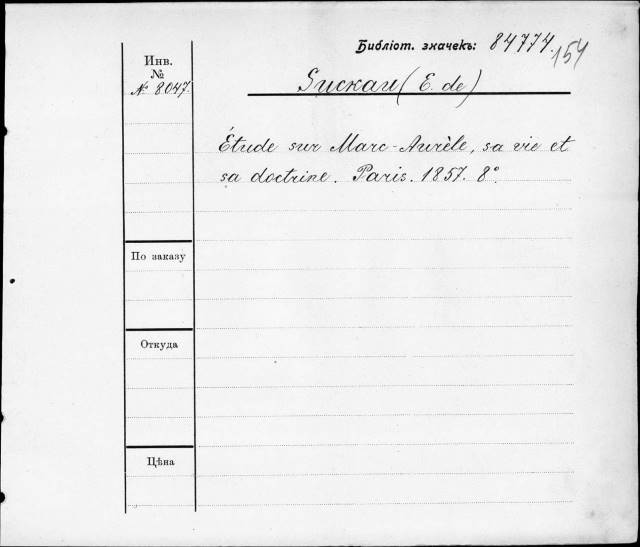 Библіот. значекъ: 84774.
154
Инв.
№
№ 8047.
Suckau (E. de)
Étude sur Marc-Aurèle, sa vie et
sa doctrine. Paris. 1857. 8°.
По заказу
Откуда
Цѣна